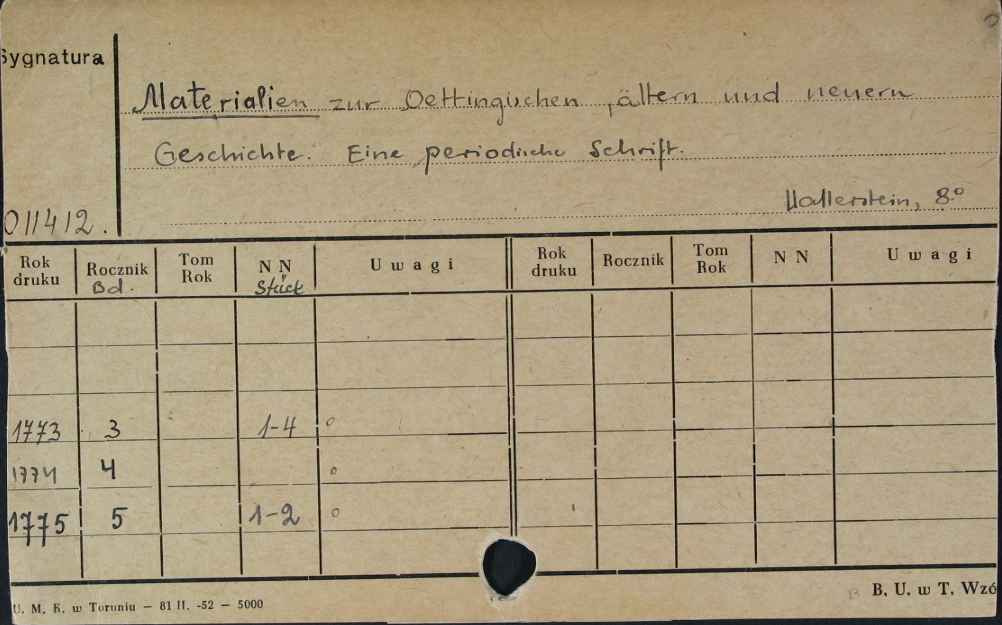 Sygnatura
Materialien zur Oettingischen, ältern und neuern
Geschichte. Eine periodische Schrift.
Wallerstein, 8°
011412.
Rok druku Rocznik Tom Rok N N U w a g i Rok druku Rocznik Tom Rok N N U w a g i
Bd. Stück
1773 3 1-4 °
1774 4 °
1775 5 1-2 °
U. M. K. w Toruniu — 81 II. -52 — 5000
B. U. w T. Wzó